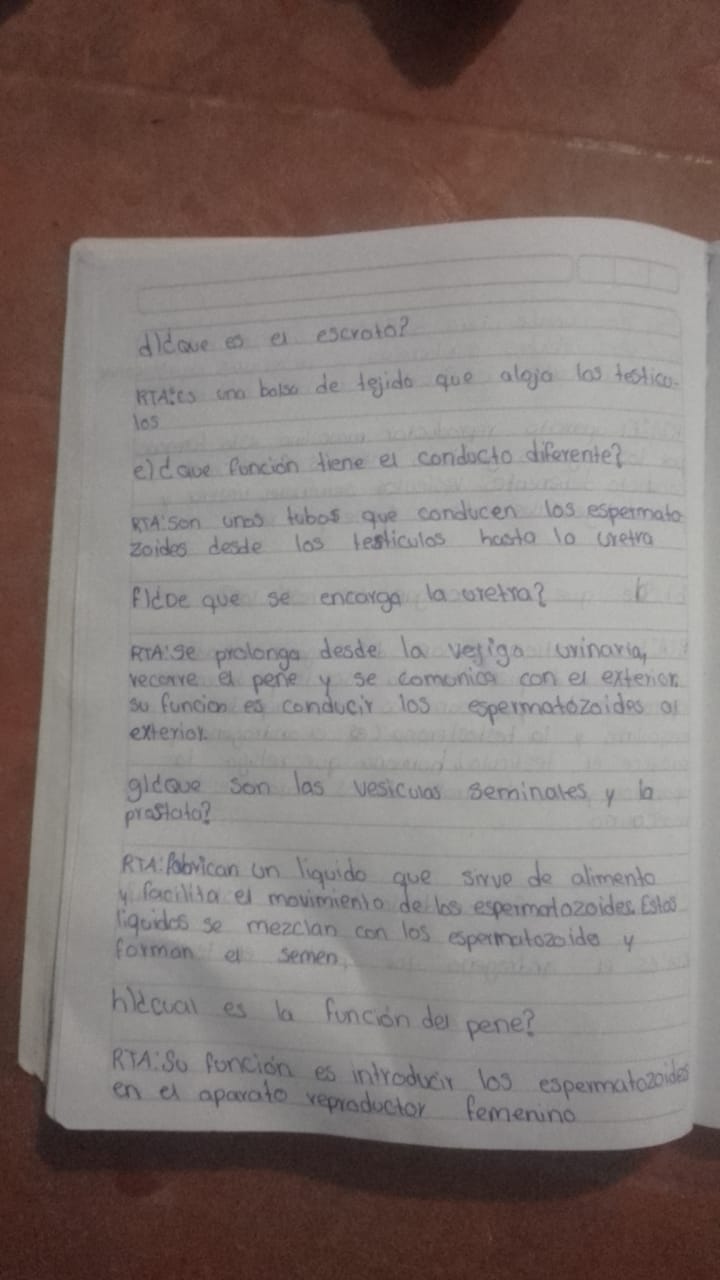 d)¿que es el escroto?
RTA:es una bolsa de tejido que aloja los testicu-
los
e)¿que función tiene el conducto diferente?
RTA:son unos tubos que conducen los espermato
zoides desde los testiculos hasta la uretra
f)¿De que se encarga la uretra?
RTA:se prolonga desde la vejiga urinaria,
recorre el pene y se comunica con el exterior.
su funcion es conducir los espermatózoides al
exterior.
g)¿que son las vesiculas seminales y la
prostata?
RTA:fabrican un liquido que sirve de alimento
y facilita el movimiento de los espermatozoides. Estos
liquidos se mezclan con los espermatozoide y
forman el semen.
h)¿cual es la función del pene?
RTA:Su función es introducir los espermatozoides
en el aparato reproductor femenino